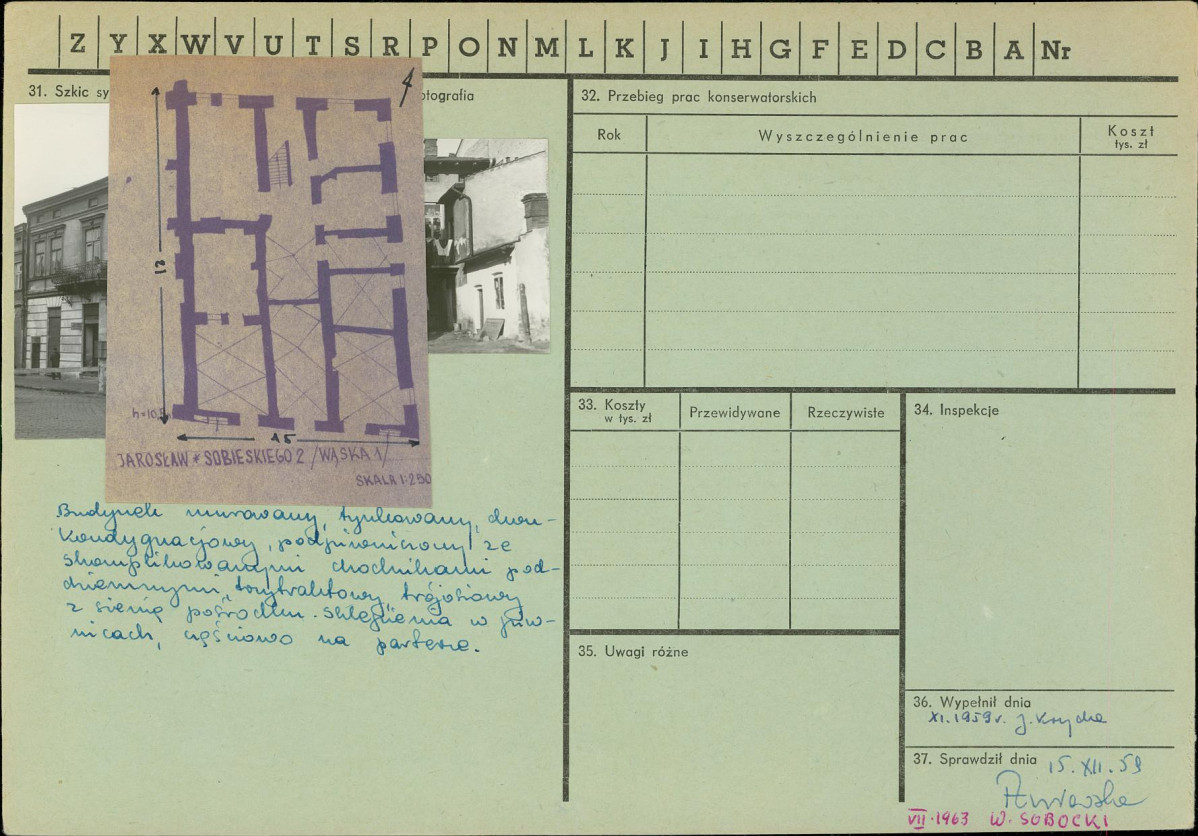 Z Y X W V U T S R P O N M L K J I H G F E D C B A Nr
31. Szkic sy
otografia
4
12
h=10,
15
JAROSŁAW * SOBIESKIEGO 2 /WĄSKA 1/
SKALA 1:250
Budynek murowany, tynkowany, dwu-
kondygnacjowy, podpiwniczony ze
skomplikowanymi chodnikami pod-
ziemnymi, trzytraktowy, trójosiowy
z sienią pośrodku. Sklepienia w piw-
nicach, częściowo na parterze.
32. Przebieg prac konserwatorskich
Rok Wyszczególnienie prac Koszt
tys. zł
33. Koszty
w tys. zł
Przewidywane Rzeczywiste
34. Inspekcje
35. Uwagi różne
36. Wypełnił dnia
XI.1959r. J.
37. Sprawdził dnia
15.XII.59
VII.1963 W. SOBOCKI